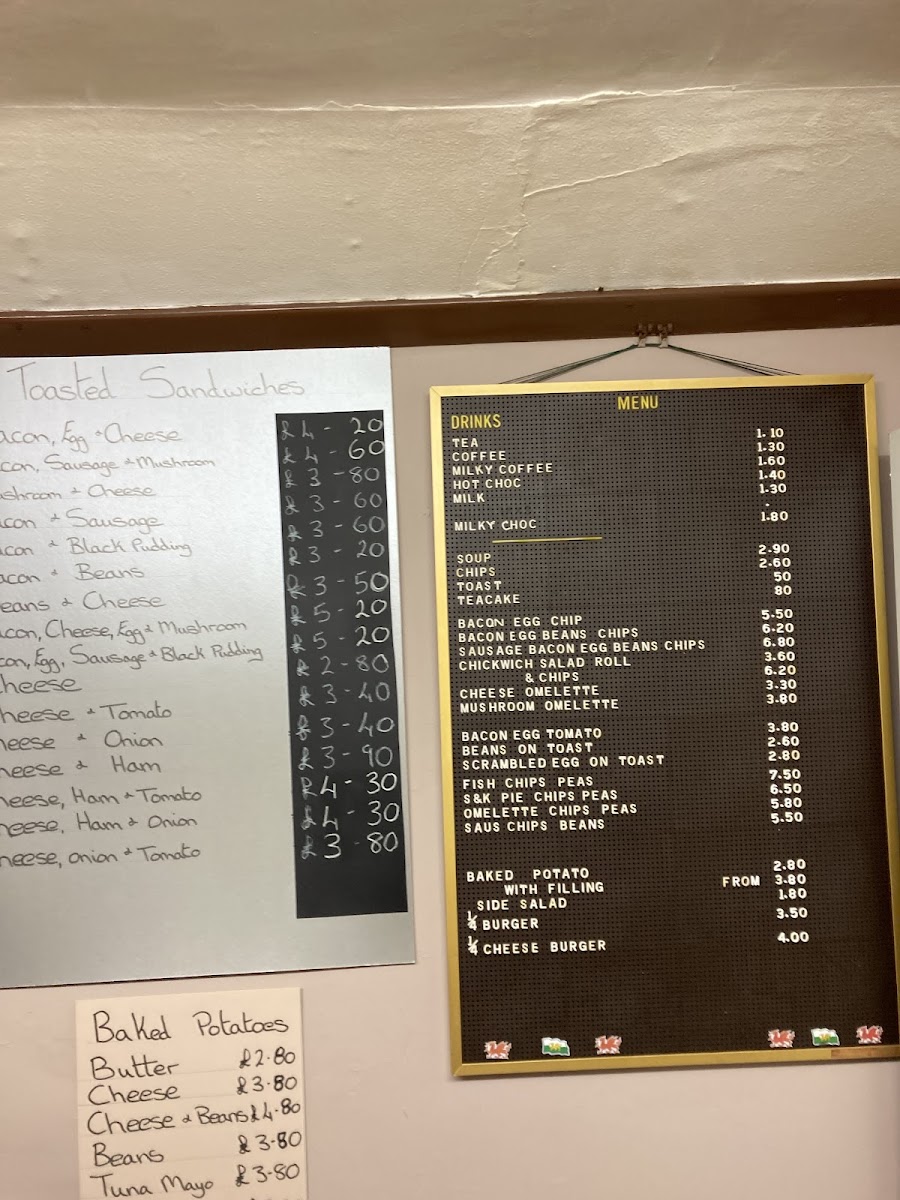 Toasted Sandwiches
acon, Egg & Cheese £4-20
con, Sausage & Mushroom £4-60
shroom & Cheese £3-80
acon & Sausage £3-60
acon & Black Pudding £3-60
acon & Beans £3-20
eans & Cheese £3-50
con, Cheese, Egg & Mushroom £5-20
con, Egg, Sausage & Black Pudding £5-20
heese £2-80
heese & Tomato £3-40
heese & Onion £3-40
heese & Ham £3-90
heese, Ham & Tomato £4-30
heese, Ham & Onion £4-30
heese, onion & Tomato £3-80
Baked Potatoes
Butter £2.80
Cheese £3.80
Cheese & Beans £4.80
Beans £3.80
Tuna Mayo £3.80
MENU
DRINKS
TEA 1.10
COFFEE 1.30
MILKY COFFEE 1.60
HOT CHOC 1.40
MILK 1.30
MILKY CHOC 1.80
SOUP 2.90
CHIPS 2.60
TOAST 50
TEACAKE 80
BACON EGG CHIP 5.50
BACON EGG BEANS CHIPS 6.20
SAUSAGE BACON EGG BEANS CHIPS 6.80
CHICKWICH SALAD ROLL 3.60
& CHIPS 6.20
CHEESE OMELETTE 3.30
MUSHROOM OMELETTE 3.80
BACON EGG TOMATO 3.80
BEANS ON TOAST 2.60
SCRAMBLED EGG ON TOAST 2.80
FISH CHIPS PEAS 7.50
S&K PIE CHIPS PEAS 6.50
OMELETTE CHIPS PEAS 5.80
SAUS CHIPS BEANS 5.50
BAKED POTATO 2.80
WITH FILLING FROM 3.80
SIDE SALAD 1.80
¼ BURGER 3.50
¼ CHEESE BURGER 4.00